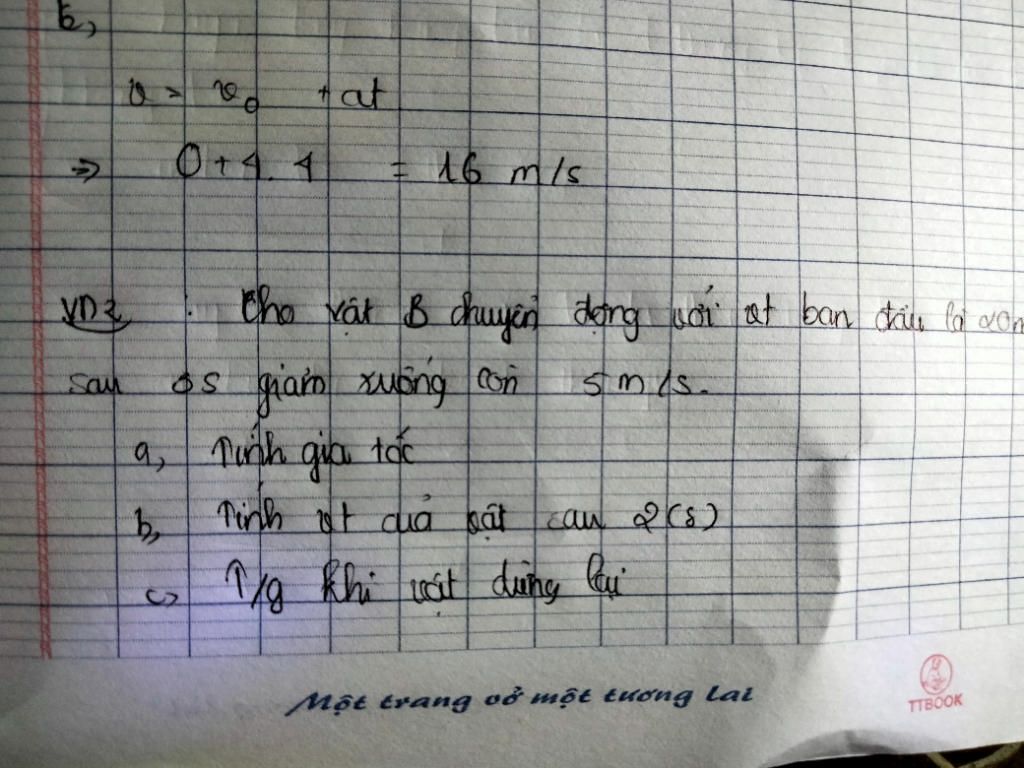 b,
v = v₀ + at
=> 0 + 4.4 = 16 m/s
VD2 : Cho vật B chuyển động với vt ban đầu là 20m
sau s giảm xuống còn 5m/s.
a, Tính gia tốc
b, Tính vt của vật sau 2(s)
c, T/g khi vật dừng lại
Một trang vở một tương lai
TTBOOK